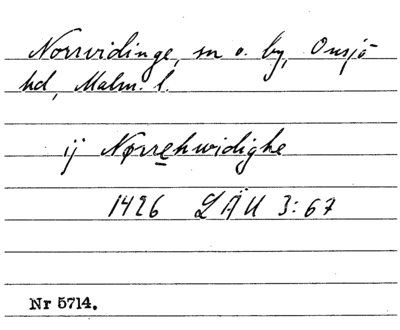 Norrvidinge, sn o. by, Onsjö
hd, Malm. l.
ij Nørrehwidighe
1426 LÄU 3:67
Nr 5714.